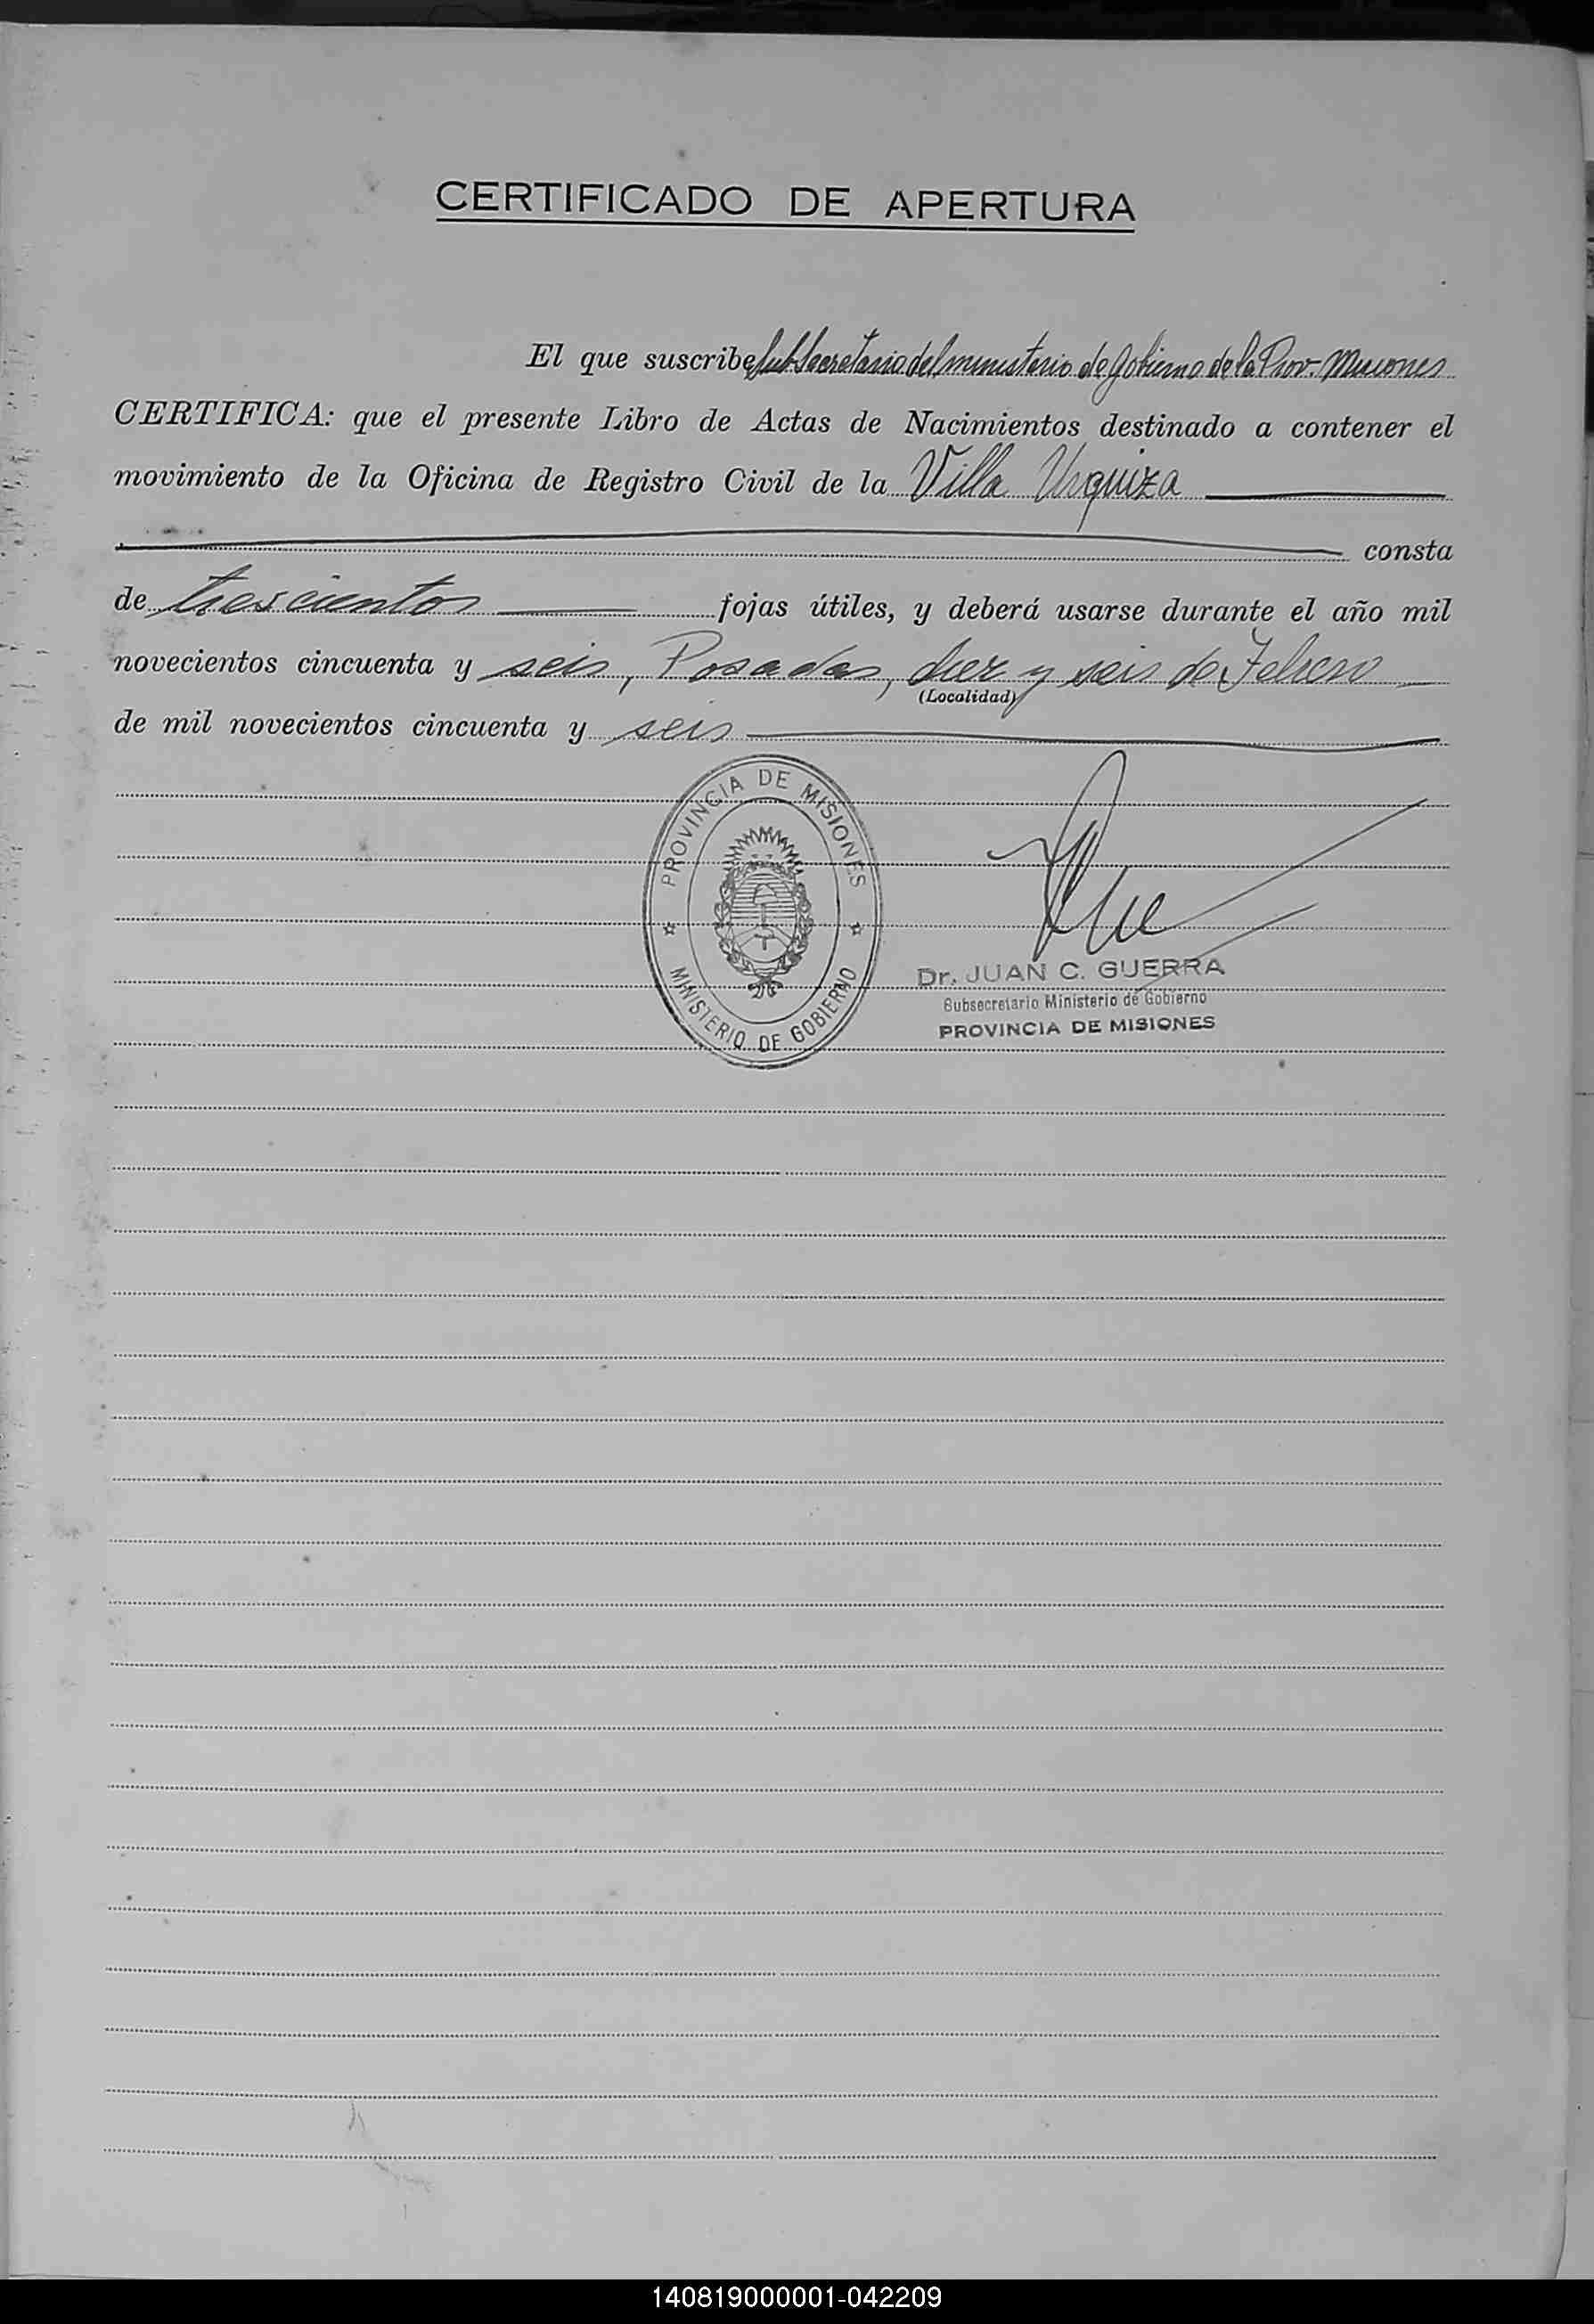 CERTIFICADO DE APERTURA
El que suscribe Sub Secretario del ministerio de Gobierno de la Prov. Misiones
CERTIFICA: que el presente Libro de Actas de Nacimientos destinado a contener el
movimiento de la Oficina de Registro Civil de la Villa Urquiza
consta
de trescientos fojas útiles, y deberá usarse durante el año mil
novecientos cincuenta y seis, Posadas, diez y seis de Febrero
(Localidad)
de mil novecientos cincuenta y seis
PROVINCIA DE MISIONES
MINISTERIO DE GOBIERNO
Dr. JUAN C. GUERRA
Subsecretario Ministerio de Gobierno
PROVINCIA DE MISIONES
140819000001-042209